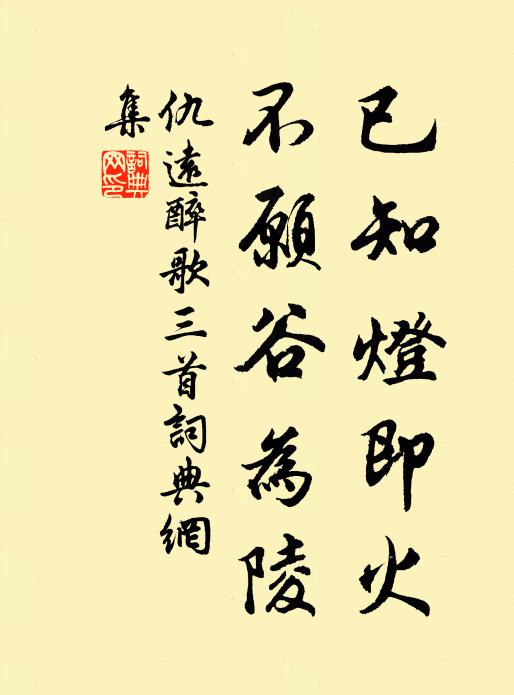 已知燈即火
不願谷為陵
仇遠醉歌三首詞典網
集
詞典
网印